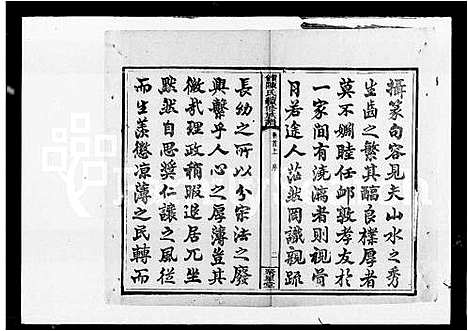 攝篆句容見夫山水之秀
生齒之繁其醞良樸厚者
莫不婣睦任卹敦孝友於
一家間有澆漓者則親骨
月若途人茫然罔識親疏
陳氏
卷首上 序
二
聚星堂
長幼之所以分宗法之廢
興繫乎人心之厚薄豈其
微哉理政稍暇退居兀坐
默然自思獎仁讓之風從
而生羨懲凉薄之民轉而